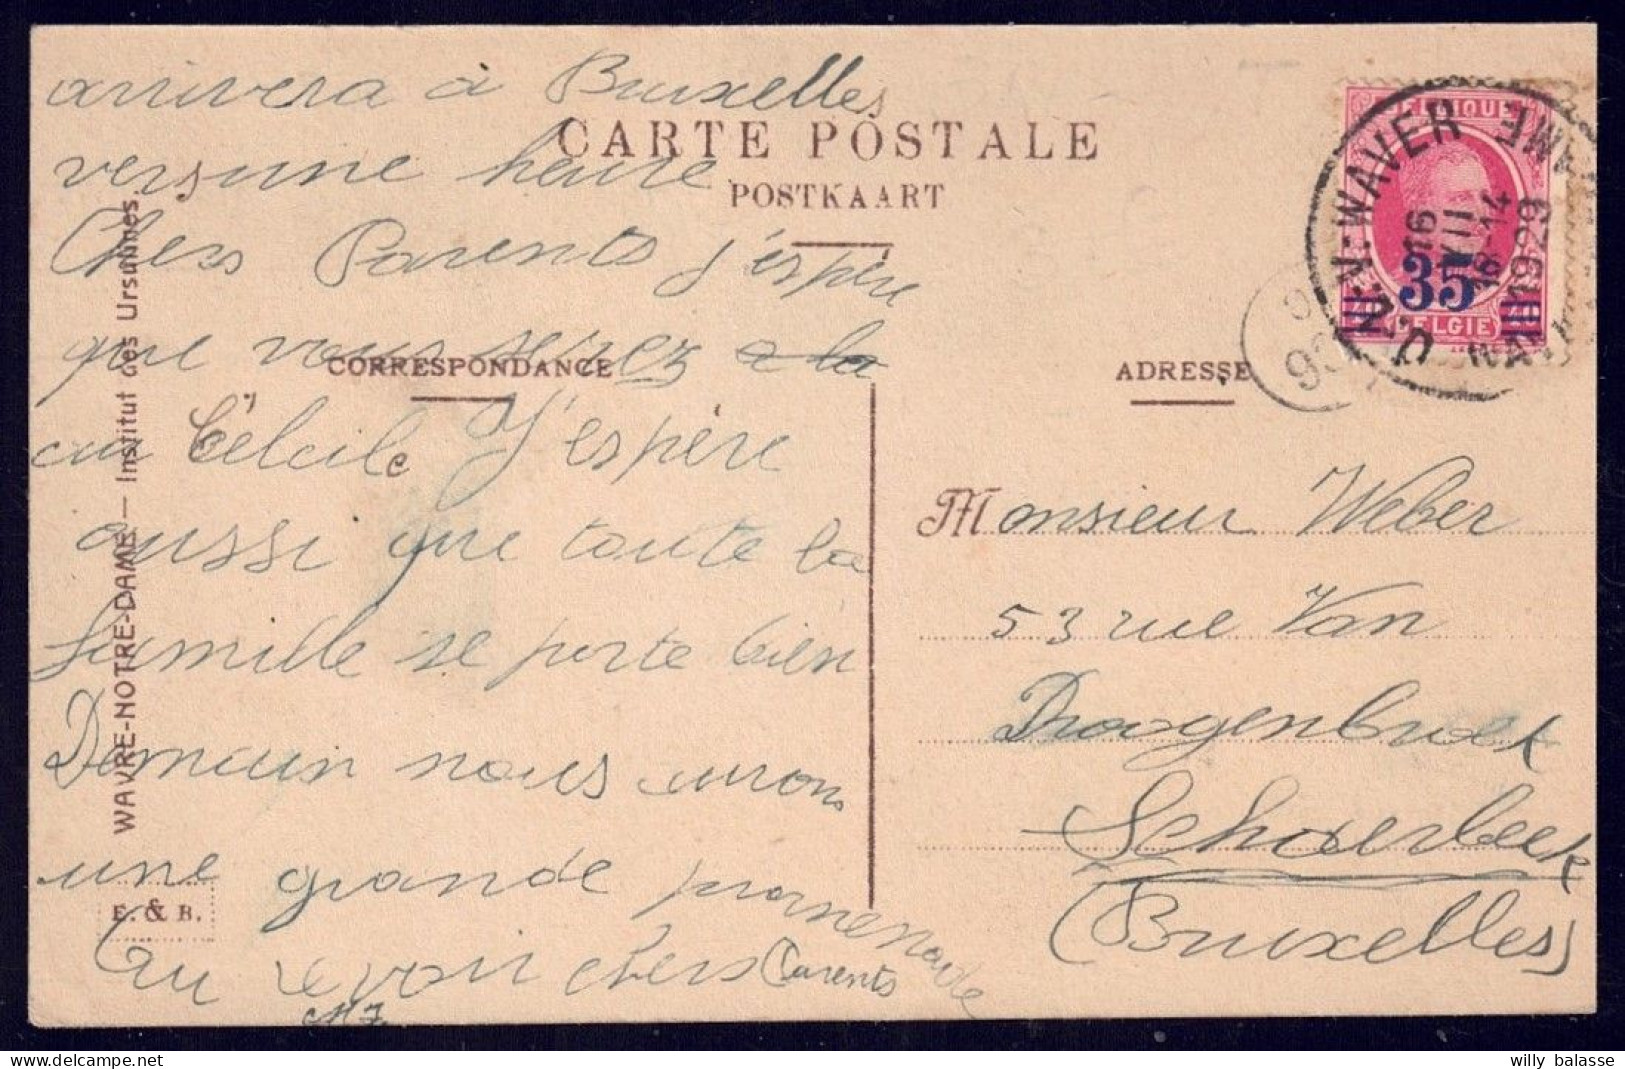 arrivera à Bruxelles
CARTE POSTALE
POSTKAART
vers une heure
Chers Parents j'éspère
que vous serez a la
CORRESPONDANCE
J'espère
aussi que toute la
famille se porte bien
Demain nous aurons
une grande promenade
Au revoir chers Parents
MJ.
WAVRE-NOTRE-DAME — Institut des Ursulines.
E. & B.
ADRESSE
Monsieur Weber
53 rue Van
Droogenbroek
Schaerbeek
(Bruxelles)
BELGIQUE
35
BELGIE
O.-L.-V.-WAVER
16 XII 18-14 1929
willy balasse